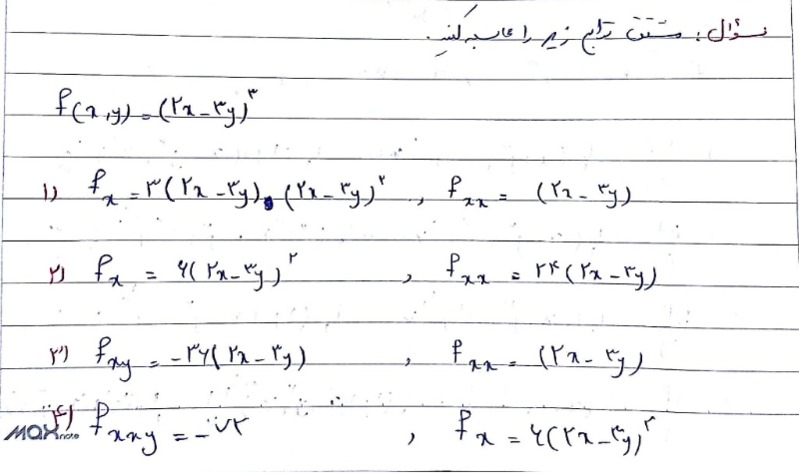 سؤال: مشتق توابع زیر را محاسبه کنید.
f(x,y) = (۲x-۳y)^۳
۱) f_x = ۳(۲x-۳y).(۲x-۳y)^۲ , f_xx = (۲x-۳y)
۲) f_x = ۶(۲x-۳y)^۲ , f_xx = ۲۴(۲x-۳y)
۳) f_xy = -۳۶(۲x-۳y) , f_xx = (۲x-۳y)
۴) f_xxy = -۷۲ , f_x = ۶(۲x-۳y)^۲
MAX note